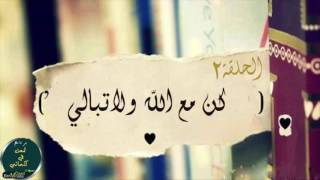 الحلقة٢
( كن مع الله ولا تبالي )